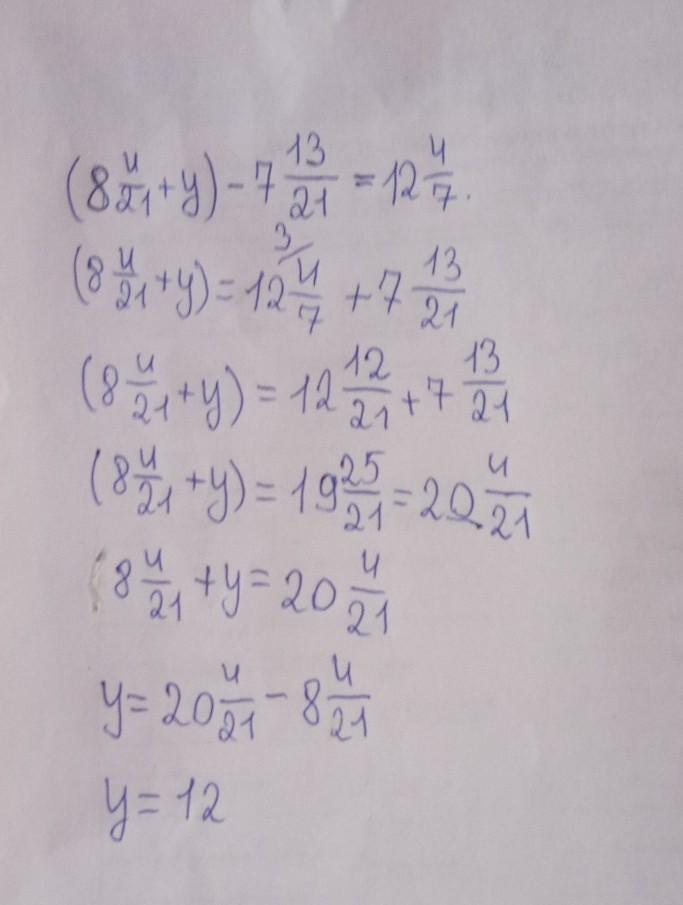 (8 4/21 + y) - 7 13/21 = 12 4/7.
(8 4/21 + y) = 12 4/7 3/ + 7 13/21
(8 4/21 + y) = 12 12/21 + 7 13/21
(8 4/21 + y) = 19 25/21 = 20 4/21
8 4/21 + y = 20 4/21
y = 20 4/21 - 8 4/21
y = 12